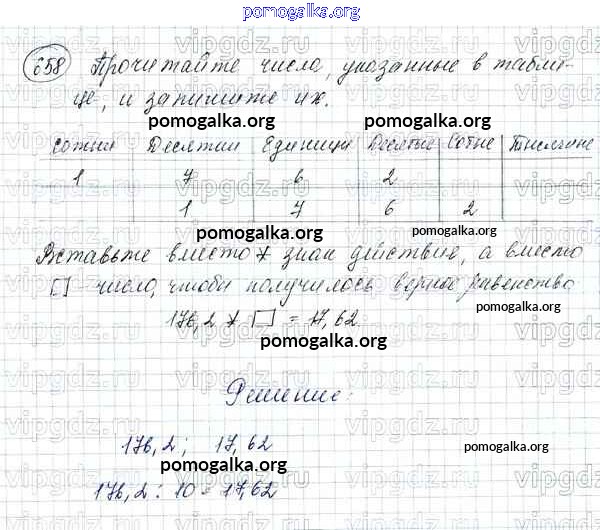 pomogalka.org
658 Прочитайте числа, указанные в табли-
це, и запишите их.
pomogalka.org pomogalka.org
сотни Десятки Единицы Десятые Сотые Тысячные
1 7 6 2
1 7 6 2
pomogalka.org pomogalka.org
Вставьте вместо * знак действия, а вместо
[] - число, чтобы получилось верное равенство
176,2 * [] = 17,62
pomogalka.org
pomogalka.org
Решение:
176,2; 17,62
pomogalka.org
176,2 : 10 = 17,62
pomogalka.org
vipgdz.ru